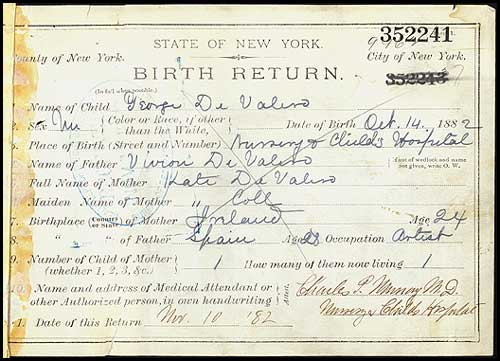 352241
STATE OF NEW YORK.
County of New York. City of New York.
BIRTH RETURN.
352213
(In full when possible.)
Name of Child George De Valero
2. Sex M Color or Race, if other than the White, Date of Birth Oct. 14. 1882
Place of Birth (Street and Number) Nursery & Child's Hospital
Name of Father Vivion De Valero
If out of wedlock and name not given, write O. W.
Full Name of Mother Kate De Valero
Maiden Name of Mother " Coll
7. Birthplace (Country or State) of Mother Ireland Age 24
8. " " of Father Spain Age 28 Occupation Artist
9. Number of Child of Mother (whether 1, 2, 3, &c.) 1 How many of them now living 1
10. Name and address of Medical Attendant or other Authorized person, in own handwriting Attest. Charles P. Murray M.D.
Nursery & Childs Hospital
11. Date of this Return Nov. 10 '82